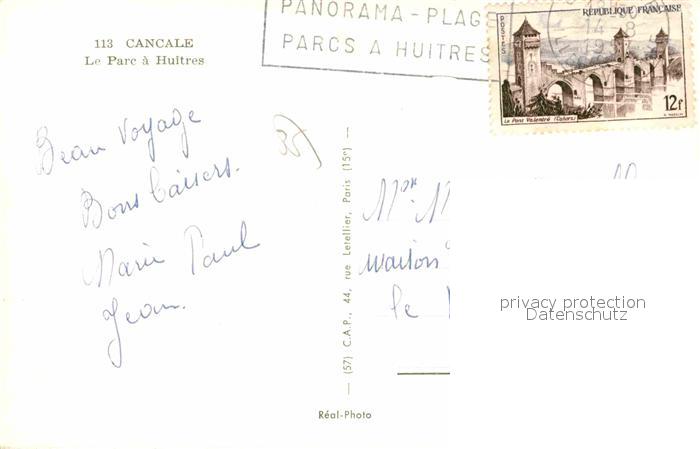 113 CANCALE
Le Parc à Huîtres
PANORAMA - PLAGE
PARCS A HUITRES
RÉPUBLIQUE FRANÇAISE
POSTES
14-8
12f
Le Pont Valentré (Cahors)
Beau Voyage
Bons baisers.
Marie Paul
Jean.
35
(57) C.A.P., 44, rue Letellier, Paris (15e)
Réal-Photo
Mr. M
maison
le
privacy protection
Datenschutz